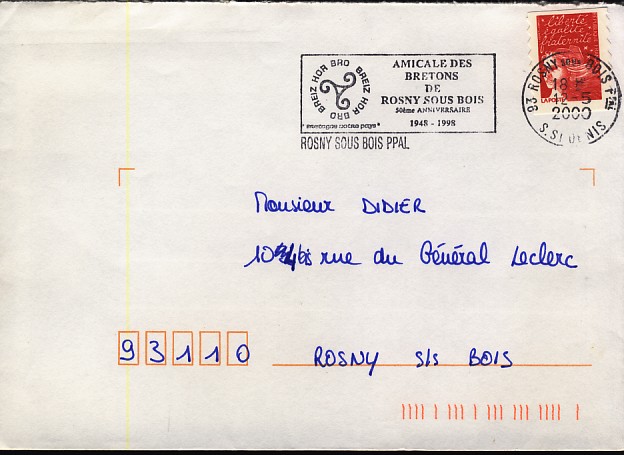 Liberté
égalité
fraternité
LA POSTE
BREIZ HOR BRO BREIZ HOR BRO
"bretagne notre pays"
AMICALE DES
BRETONS
DE
ROSNY SOUS BOIS
50ème ANNIVERSAIRE
1948 - 1998
93 ROSNY SOUS BOIS PPAL
18 H
2000
S. ST DENIS
ROSNY SOUS BOIS PPAL
Monsieur DIDIER
rue du Général Leclerc
93110 ROSNY s/s BOIS